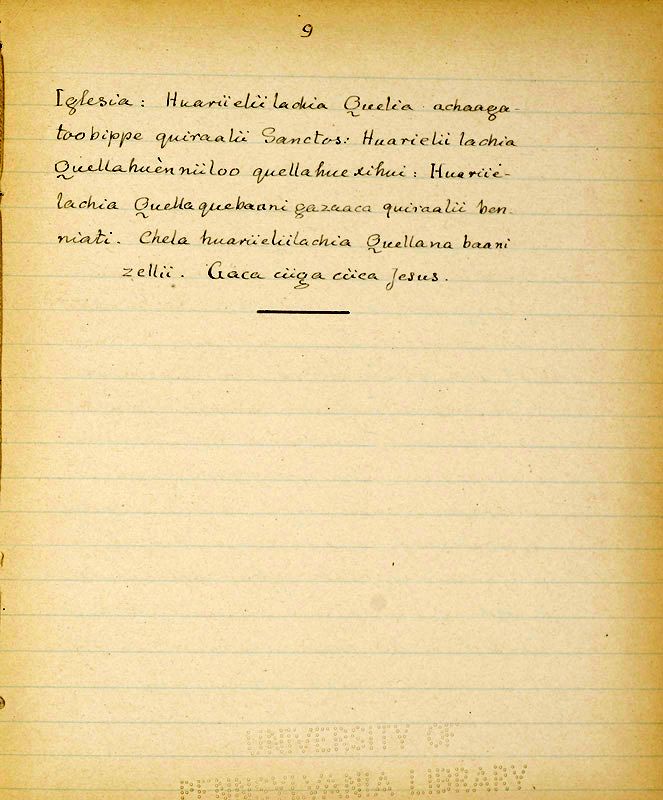 9
Iglesia: Huariielii lachia Quelia achaaga-
toobippe quiraalii Sanctos: Huarielii lachia
Quellahuènniiloo quellahuexihui: Huariié-
lachia Quellaquebaani gazaaca quiraalii ben-
niati. Chela huariieliilachia Quellana baani
zellii. Gaca ciiga ciica Jesus.
UNIVERSITY OF
PENNSYLVANIA LIBRARY